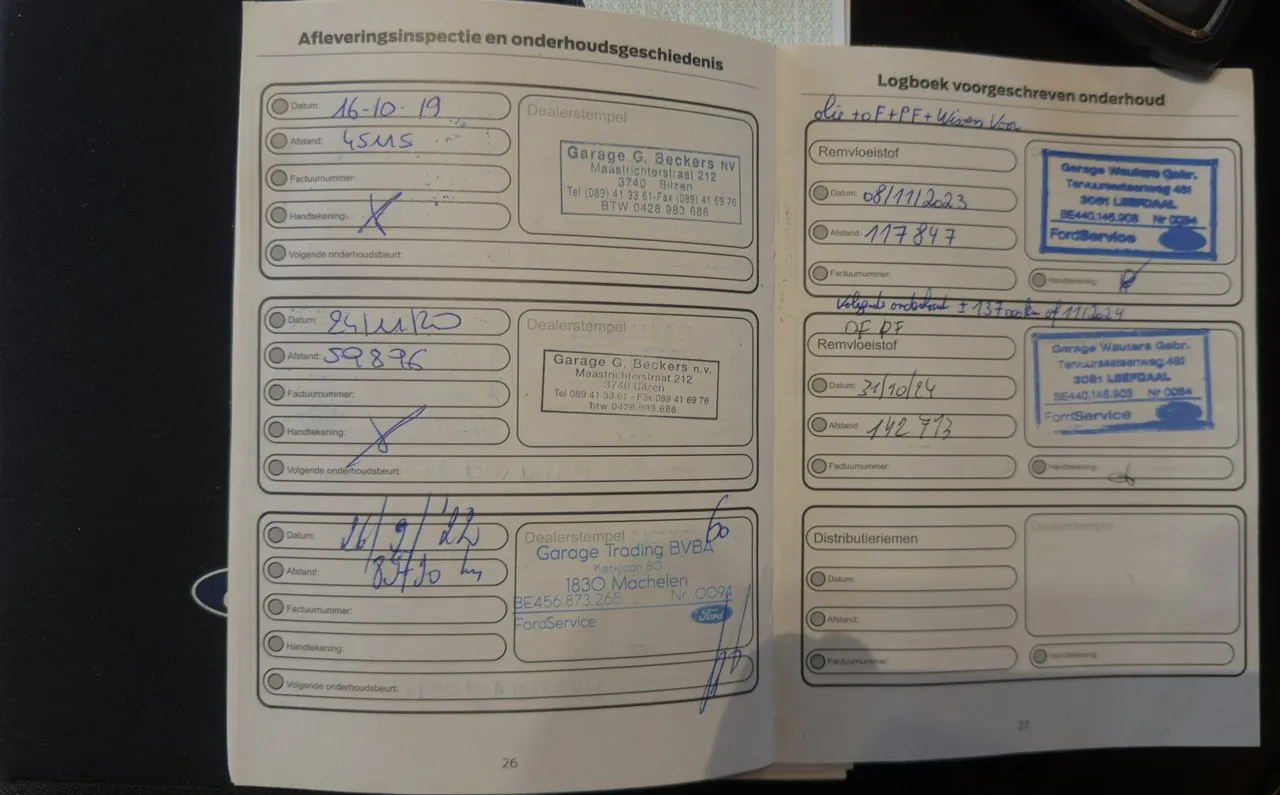 Afleveringsinspectie en onderhoudsgeschiedenis
Datum: 16-10-19
Afstand: 45115
Factuurnummer:
Handtekening:
Volgende onderhoudsbeurt:
Dealerstempel
Garage G. Beckers NV
Maastrichterstraat 212
3740 Bilzen
Tel (089) 41 33 61-Fax (089) 41 69 76
BTW 0428 983 686
Datum: 24/11/20
Afstand: 59896
Factuurnummer:
Handtekening:
Volgende onderhoudsbeurt:
Dealerstempel
Garage G. Beckers n.v.
Maastrichterstraat 212
3740 Bilzen
Tel 089 41 33 61 - Fax 089 41 69 76
btw 0428 983.686
Datum: 26/9/'22
Afstand:
Factuurnummer:
Handtekening:
Volgende onderhoudsbeurt:
Dealerstempel
Garage Trading BVBA
Kerklaan 80
1830 Machelen
BE456.873.265 Nr. 0094
FordService
Ford
26
Logboek voorgeschreven onderhoud
olie + oF + PF + Wissen Voor
Remvloeistof
Datum: 08/11/2023
Afstand: 117847
Factuurnummer:
Garage Wauters Gebr.
Tervuursesteenweg 481
3061 LEEFDAAL
BE440.146.903 Nr 0084
FordService
Handtekening:
Volgende onderhoud ± 137 of 11/2024
OF PF
Remvloeistof
Datum: 31/10/24
Afstand: 142 713
Factuurnummer:
Garage Wauters Gebr.
Tervuursesteenweg 481
3061 LEEFDAAL
BE440.146.903 Nr 0084
FordService
Handtekening:
Distributieriemen
Datum:
Afstand:
Factuurnummer:
Dealerstempel
Handtekening:
27